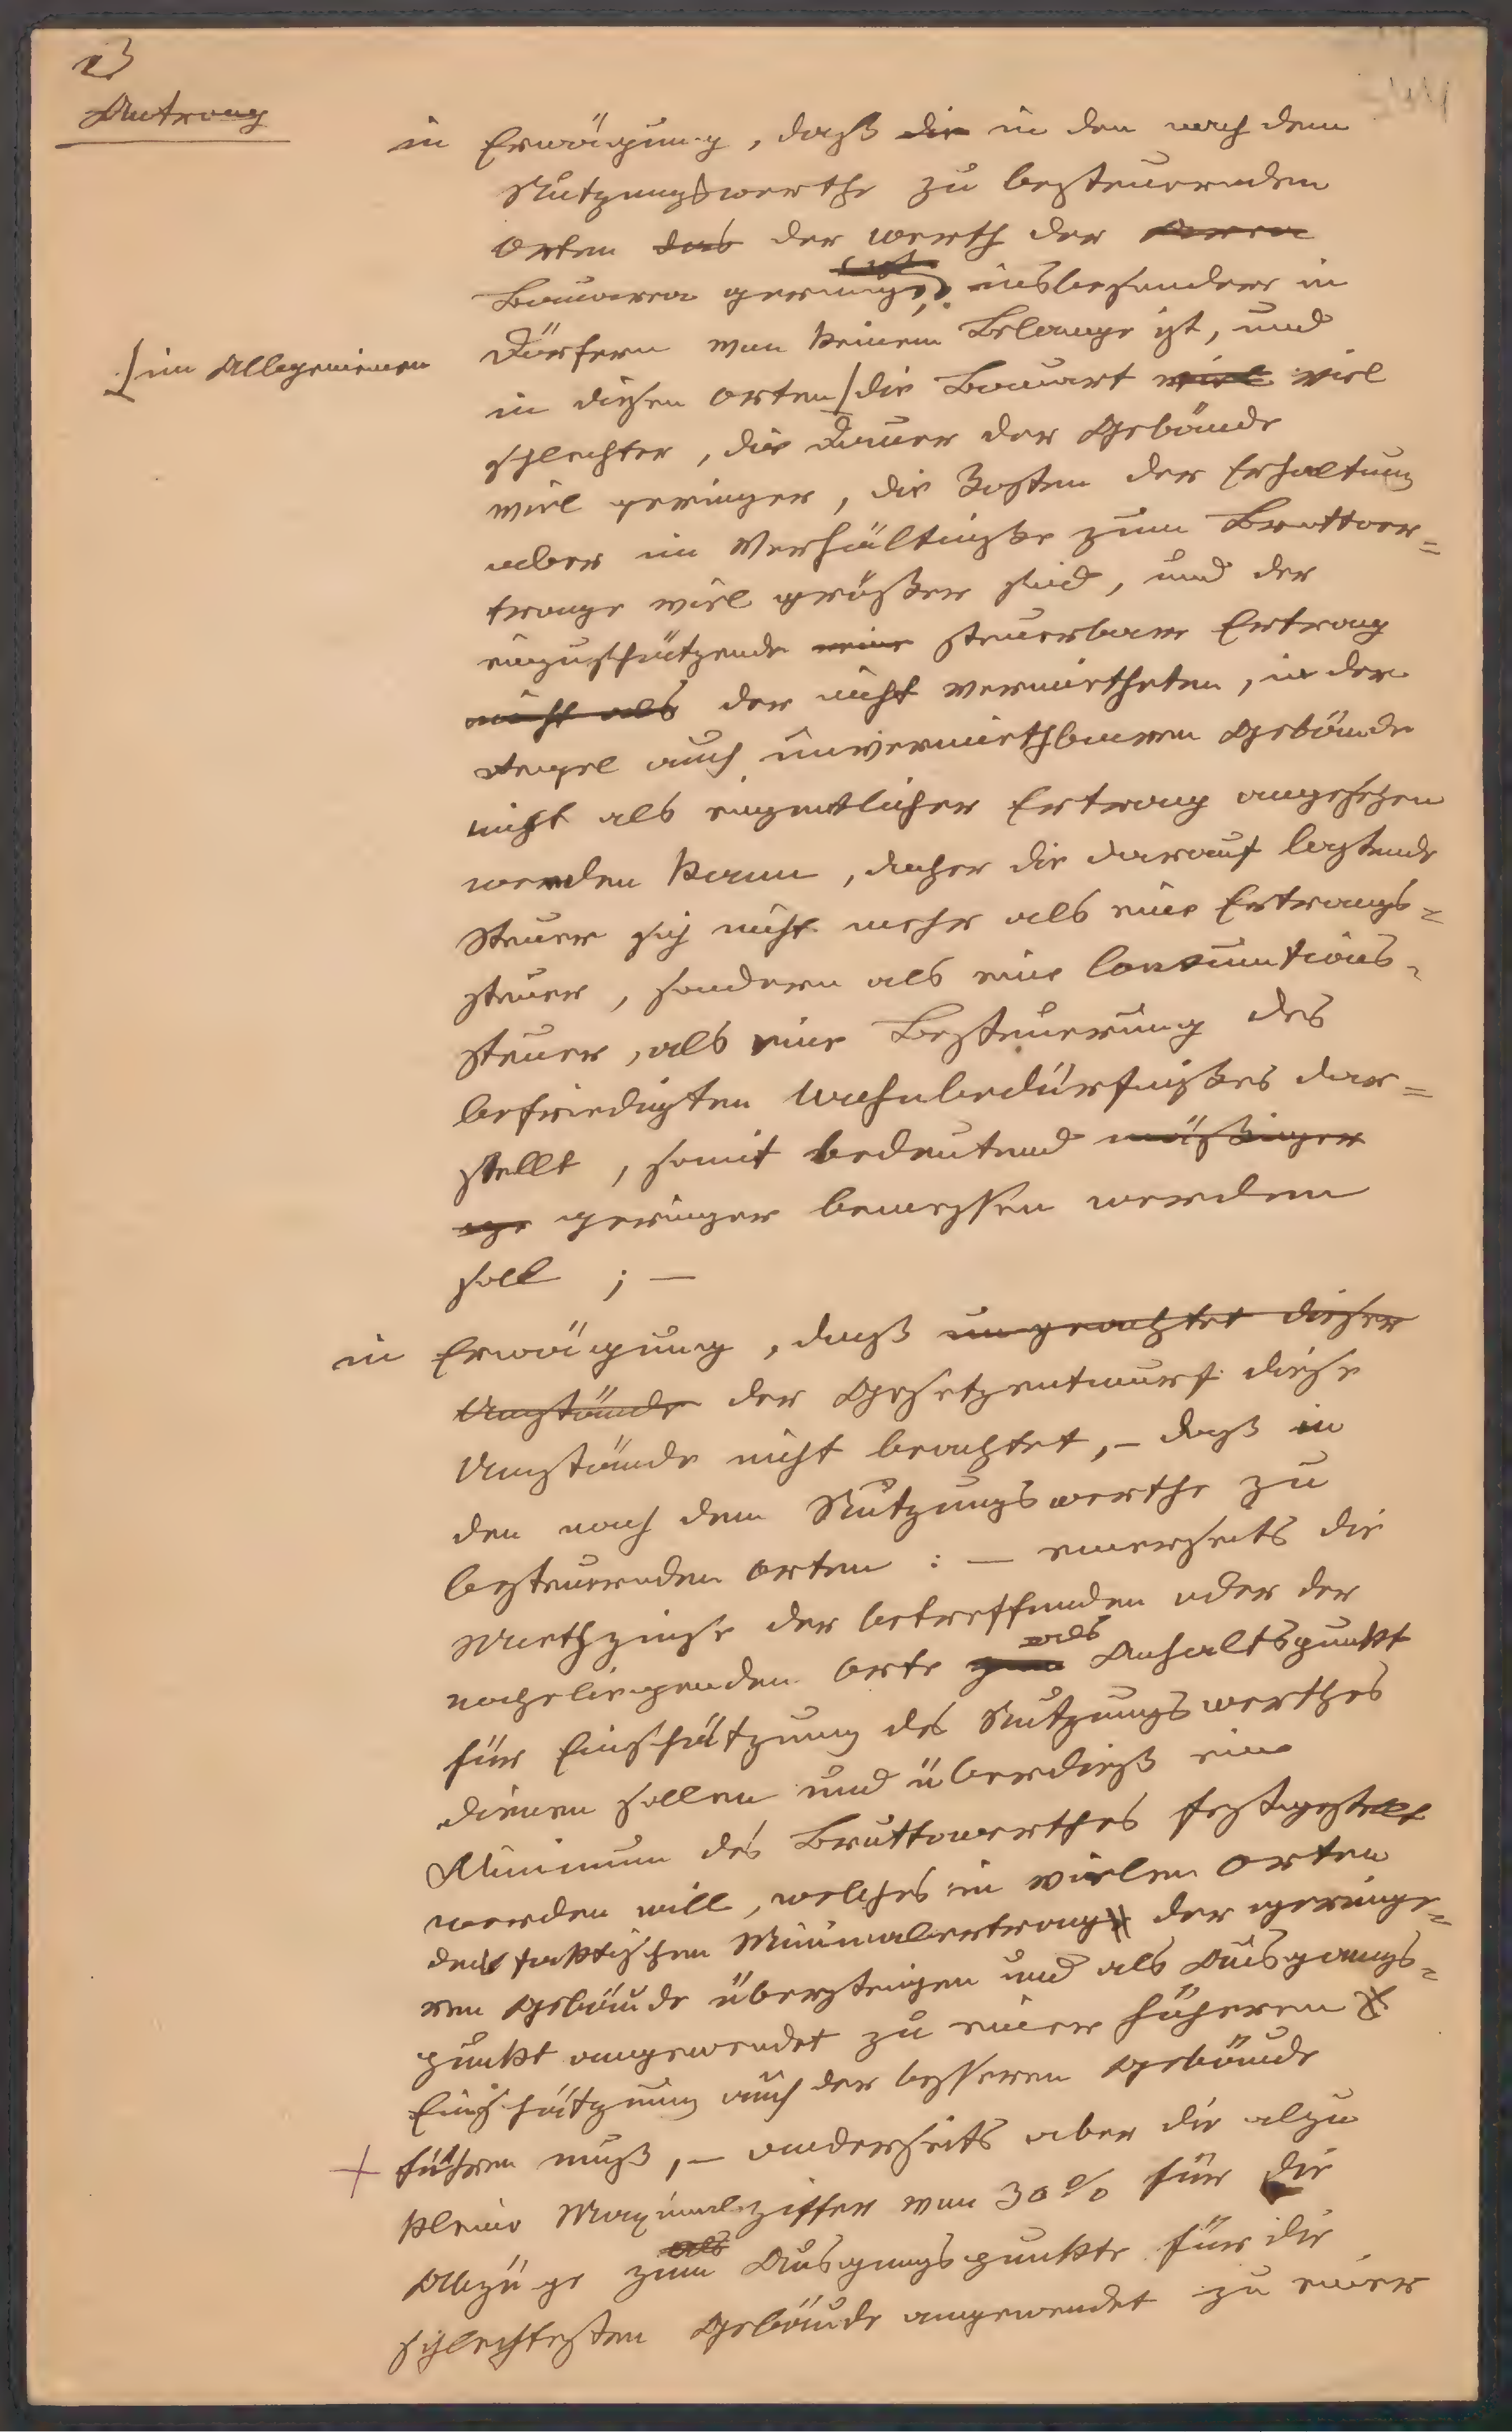 Antrag
in Erwägung, daß die in den nach dem
Nutzungswerthe zu besteuernden
Orten das der Werth der Area
Bauarea gering ist, insbesondere in
Dörfern von keinem Belange ist, und
[im Allgemeinen
in diesen Orten [die Bauart viel viel
schlechter, die Dauer der Gebäude
viel geringer, die Kosten der Erhaltung
aber im Verhältniße zum Bruttoer=
trage viel größer sind, und der
einzuschätzende reine steuerbare Ertrag
nicht als der nicht vermietheten, in der
Regel auch unvermiethbaren Gebäude
nicht als eigentlicher Ertrag angesehen
werden kann, daher die darauf lastende
Steuer sich nicht mehr als eine Ertrags=
steuer, sondern als eine Consumtions=
steuer, als eine Besteuerung des
befriedigten Wohnbedürfnißes dar=
stellt, somit bedeutend mäßiger
ge geringer bemessen werden
soll ; —
in Erwägung, daß ungeachtet dieser
Umstände der Gesetzentwurf diese
Umstände nicht beachtet, – daß in
den nach dem Nutzungswerthe zu
besteuernden Orten : — einerseits die
Miethzinse der betreffenden oder der
naheliegenden Orte zum als Anhaltspunkt
für Einschätzung des Nutzungswerthes
dienen sollen und überdieß ein
Minimum des Bruttowerthes festgestellt
werden will, welches in vielen Orten
den faktischen Minimalertrag der geringe=
ren Gebäude übersteigen und als Ausgangs=
punkt angewendet zu einer höheren
Einschätzung auch der besseren Gebäude
+ führen muß, – anderseits aber die alzu
kleine Maximalziffer von 30% für die
Abzüge zum als Ausgangspunkte für die
schlechtesten Gebäude angewendet zu einer